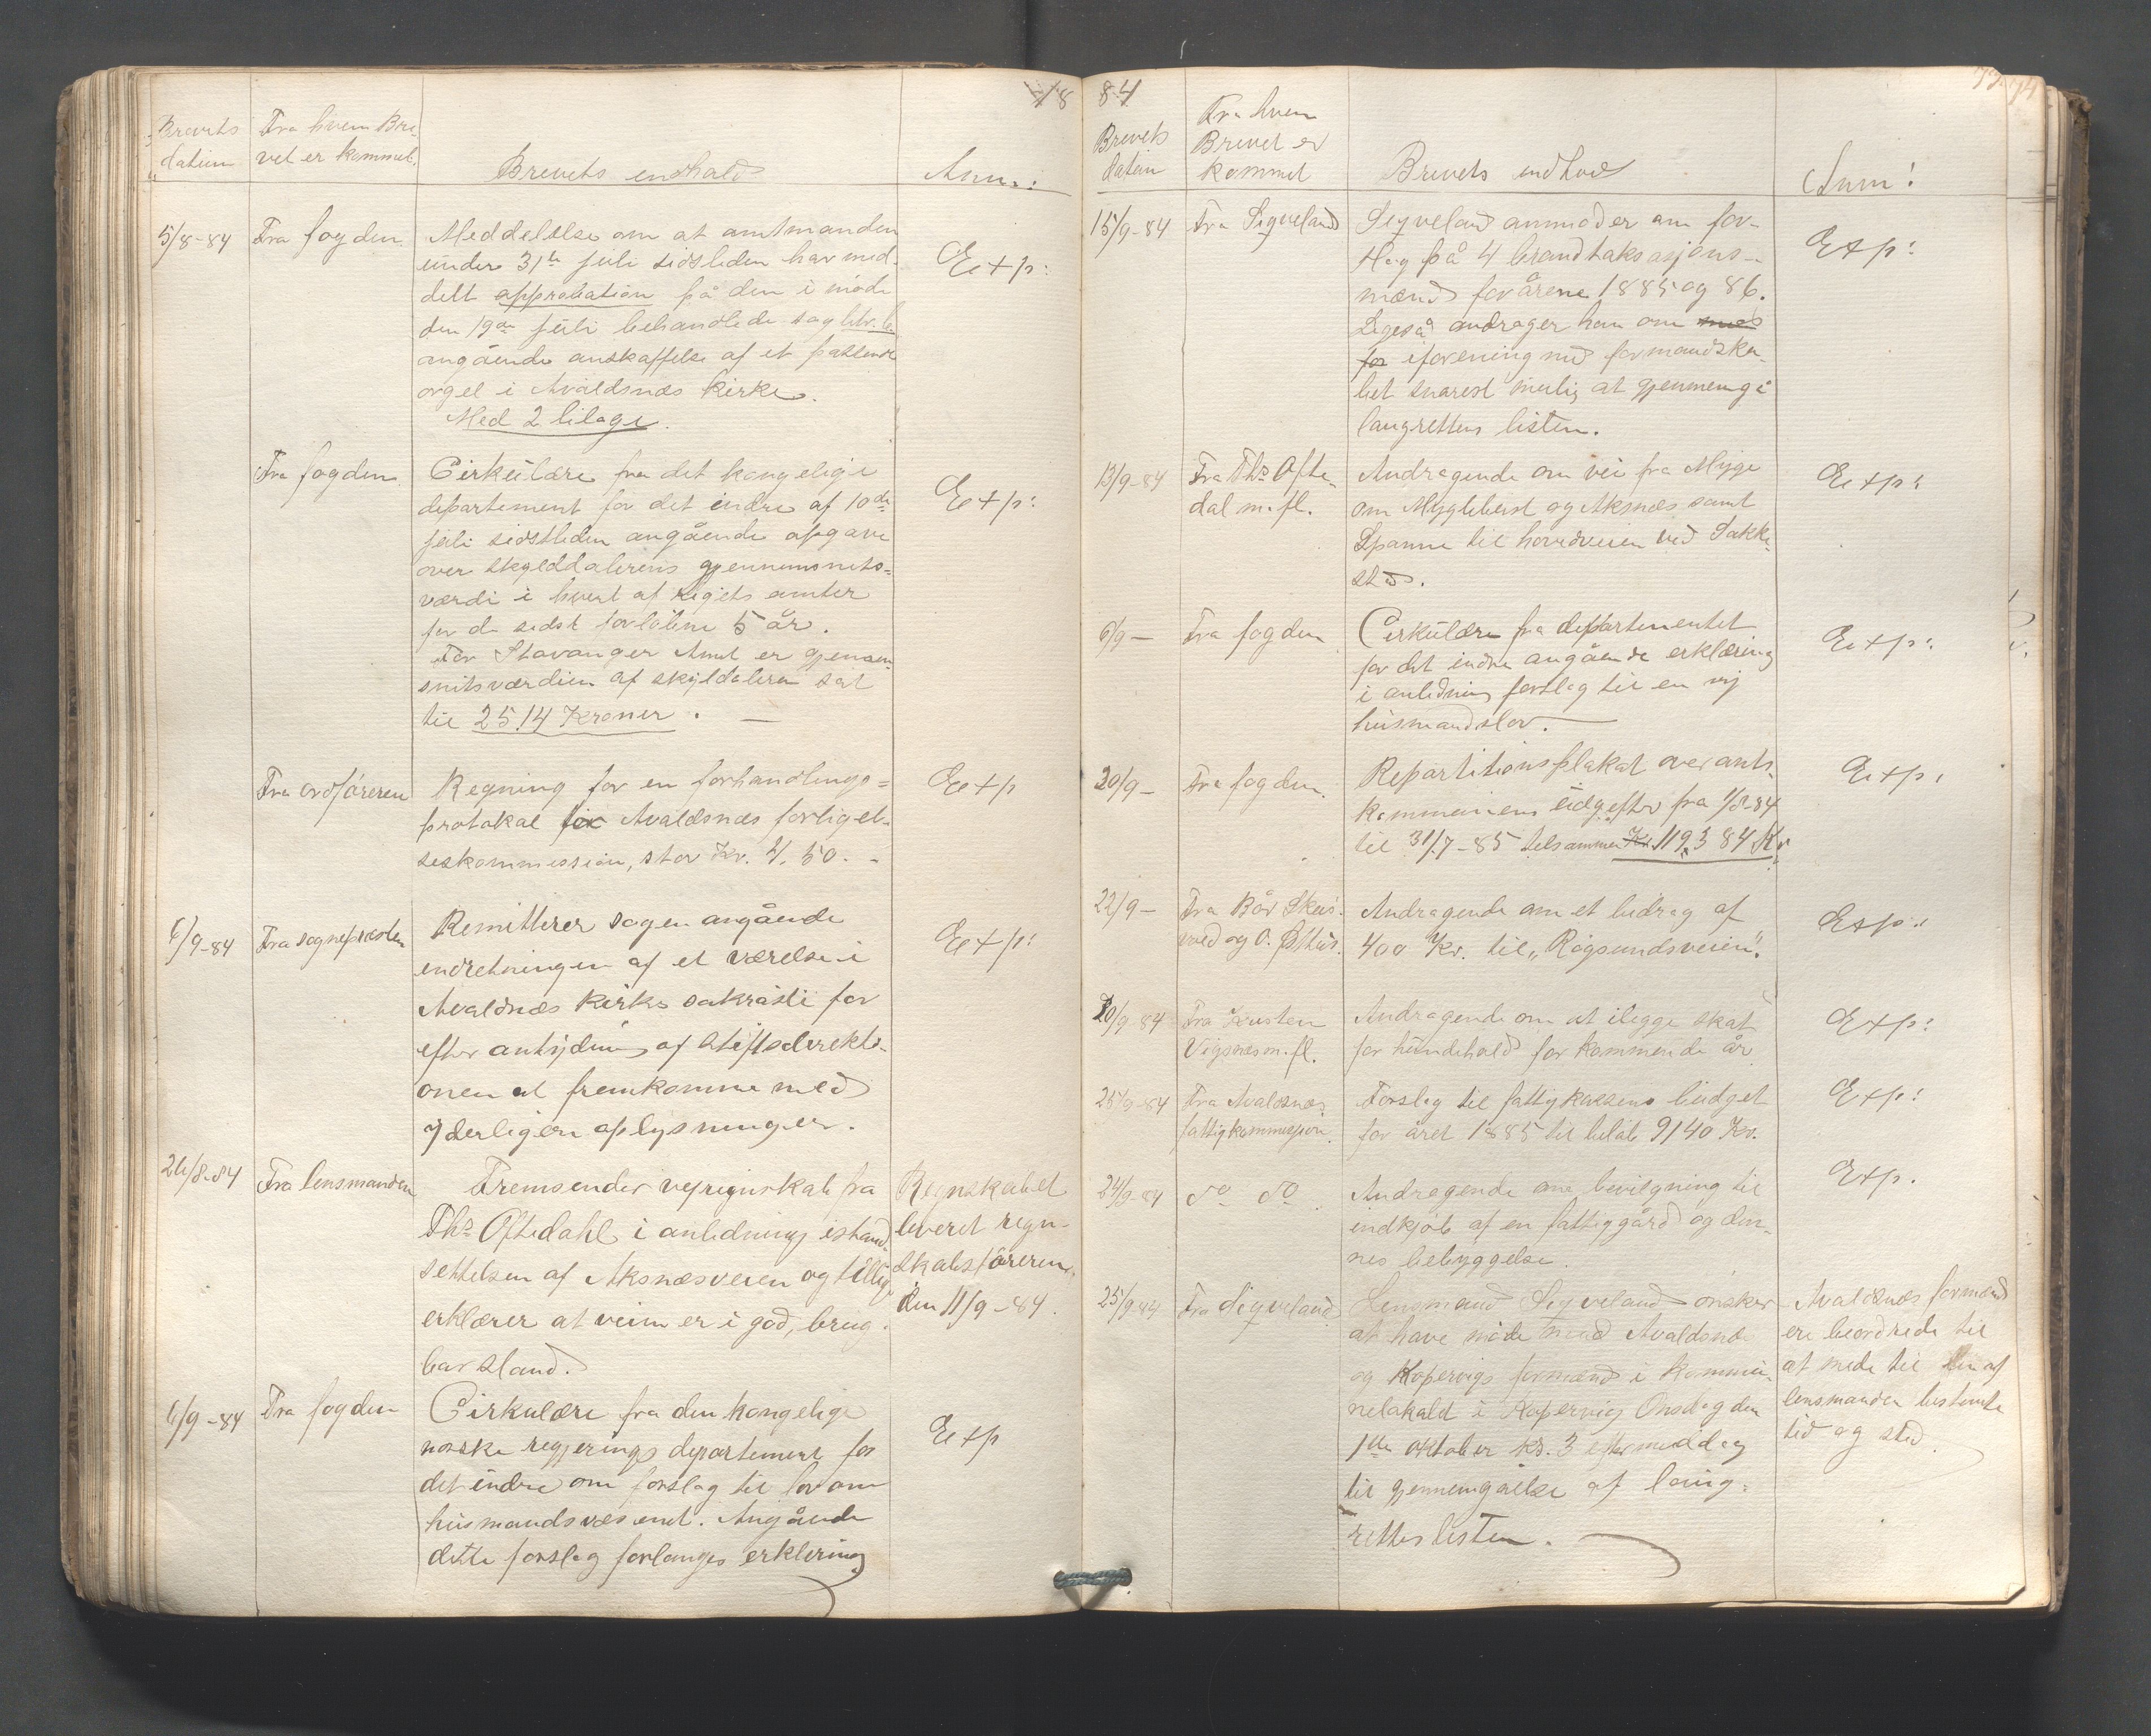 18
Brevets
datum
Fra hvem Bre-
vet er kommet.
Brevets indhold
Anm:
5/8-84
Fra fogden
Meddelelse om at amtmanden
under 31te juli sidstleden har med-
delt approbation på den i møde
den 19de juli behandlede sag litr. b.
angående anskaffelse af et passende
orgel i Avaldsnæs kirke.
Med 2 bilage.
Exp:
Fra fogden
Cirkulære fra det kongelige
departement for det indre af 10de
juli sidstleden angående opgave
over skylddalerens gjennemsnits=
værdi i hvert af rigets amter
for de sidst forløbne 5 år.
For Stavanger Amt er gjennem
snitsværdien af skyldaleren sat
til 2514 Kroner. —
Exp:
Fra ordføreren
Regning for en forhandlings=
protokol for Avaldsnæs forligel-
seskommission, stor Kr. 4.50.-
Exp
6/9-84
Fra sognepresten
Remitterer sagen angående
indretningen af et værelse i
Avaldnæs kirkes sakristi for
efter antydning af stiftsdirekti-
onen at fremkomme med
yderligere oplysninger.
Exp:
26/8-84
Fra lensmanden
Fremsender vejregnskab fra
Ths Oftedahl i anledning istand-
settelsen af Aksnæsveien og tillige
erklærer at veien er i god, brug-
bar stand.
Regnskabet
leveret regn-
skabsføreren
den 11/9-84.
6/9-84
Fra fogden
Cirkulære fra den kongelige
norske regjerings departement for
det indre om forslag til lov om
husmandsvæsenet. Angående
dette forslag forlanges erklæring
Exp
84
74
Brevets
datum
Fra hvem
Brevet er
kommet
Brevets indhold
Anm:
15/9-84
Fra Sigveland
Sigveland anmoder om for-
slag på 4 brandtaksasjons-
mænd for årene 1885 og 86.
Ligeså andrager han om med
for iforening med formandska-
bet snarest mulig at gjennemgå
laugrettens listen.
Exp:
13/9-84
Fra Ths Ofte-
dal m. fl.
Andragende om vei fra Myge
om Myglebust og Aksnæs samt
Spanne til hovedveien ved Sakke-
stad.
Exp:
6/9 —
Fra fogden
Cirkulære fra departementet
for det indre angående erklæring
i anledning forslag til en ny
husmandslov. —
Exp:
20/9 —
Fra fogden.
Repartitionsplakat over amts-
kommunens udgifter fra 1/8-84
til 31/7-85 tilsammen Kr. 119384 Kr
Exp:
22/9 —
Fra Bår Skeis-
vold og O. Østhus.
Andragende om et bidrag af
400 Kr. til „Røgsundsveien".
Exp:
20/9-84
Fra Kristen
Vigsnæs m. fl.
Andragende om at ilegge skat
for hundehold for kommende år
Exp:
25/9-84
Fra Avaldsnæs
fattigkommisjon.
Forslag til fattigkassens budget
for året 1885 til beløb 9140 Kr.
Exp:
24/9-84
do do
Andragende om bevilgning til
indkjøb af en fattiggård og den-
nes bebyggelse.
Exp.
25/9-84
Fra Sigveland
Lensmand Sigveland ønsker
at have møde med Avaldsnæs
og Kopervigs formænd i kommu-
nelokalet i Kopervig Onsdag den
1ste oktober kl. 3 eftermiddag
til gjennemgåelse af laug-
retteslisten.
Avaldsnæs formænd
ere beordrede til
at møde til den af
lensmanden bestemte
tid og sted.